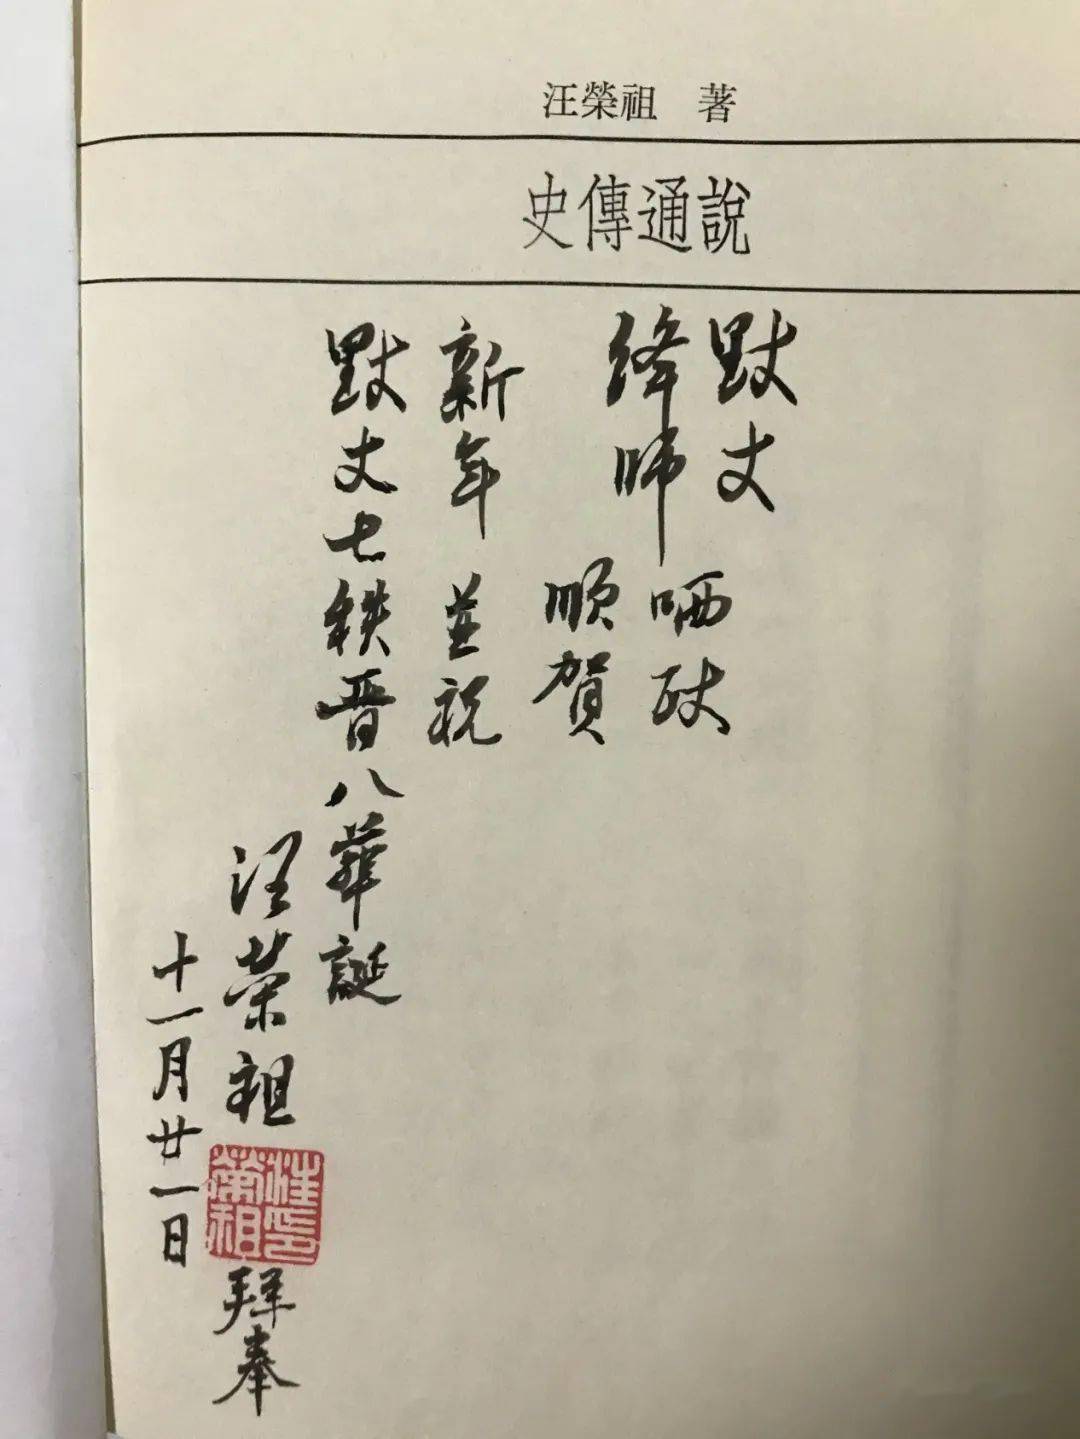 汪榮祖 著
史傳通說
默丈
絳師
哂政
順賀
新年 並祝
默丈七秩晉八華誕
汪榮祖
汪印榮祖
拜奉
十一月廿一日